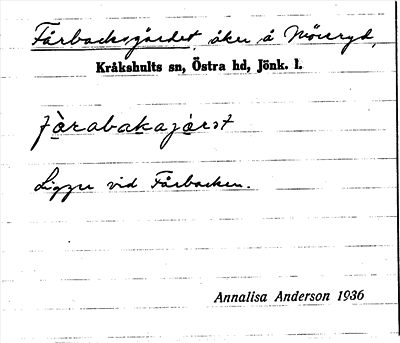 Fårbacksgärdet, åker å Mörsryd,
Kråkshults sn, Östra hd, Jönk. l.
Ligger vid Fårbacken.
Annalisa Anderson 1936